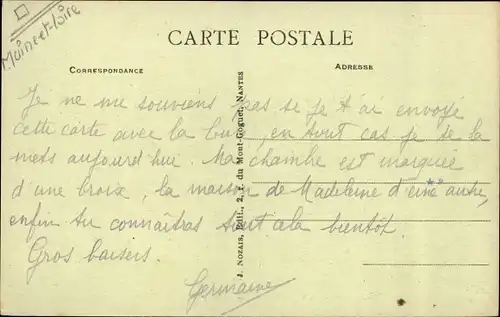 Maine-et-Loire
CARTE POSTALE
CORRESPONDANCE
ADRESSE
Je ne me souviens pas se je t'ai envoyé
cette carte avec la , en tout cas je te la
mets aujourd'hui. Ma chambre est marquée
d'une croix, la maison de Madeleine d'une autre,
enfin tu connaîtras tout cela bientôt.
Gros baisers.
Germaine
J. NOZAIS, Edit., 2, r. du Mont-Goguet, NANTES